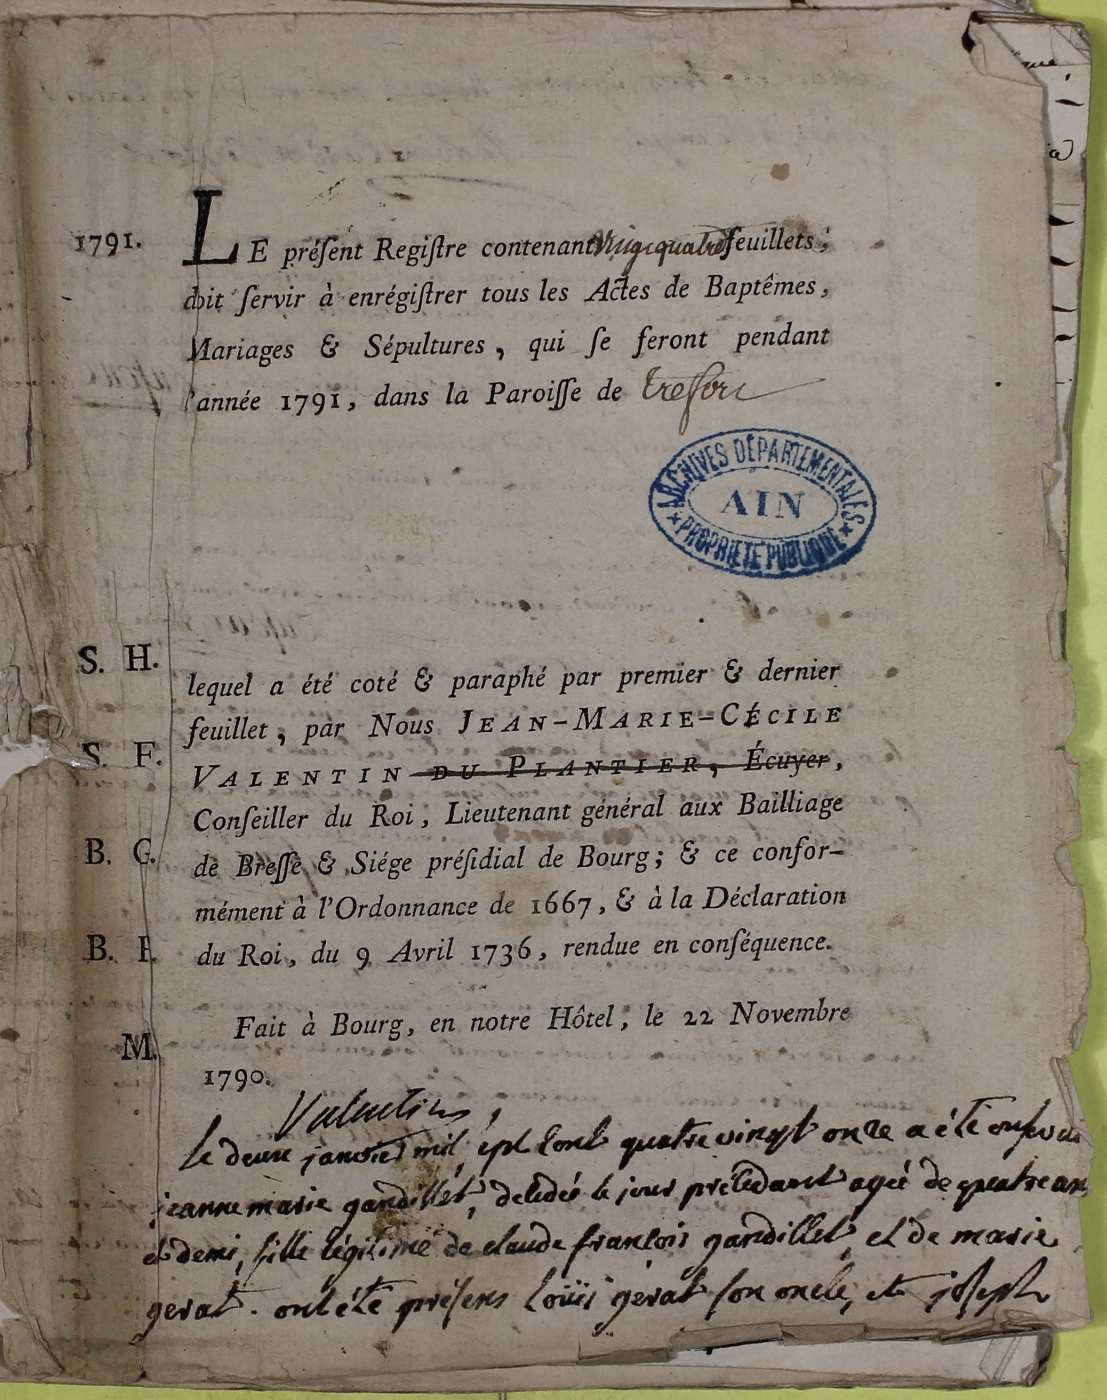 1791.
LE préſent Regiſtre contenant vingt quatre feuillets,
doit ſervir à enrégiſtrer tous les Actes de Baptêmes,
Mariages & Sépultures, qui ſe feront pendant
l'année 1791, dans la Paroiſſe de treffort
ARCHIVES DÉPARTEMENTALES
AIN
PROPRIÉTÉ PUBLIQUE
S. H.
lequel a été coté & paraphé par premier & dernier
feuillet, par Nous JEAN-MARIE-CÉCILE
S. F.
VALENTIN DU PLANTIER, Écuyer,
Conſeiller du Roi, Lieutenant général aux Bailliage
B. G.
de Breſſe & Siége préſidial de Bourg; & ce confor-
mément à l'Ordonnance de 1667, & à la Déclaration
B. F.
du Roi, du 9 Avril 1736, rendue en conſéquence.
Fait à Bourg, en notre Hôtel, le 22 Novembre
M.
1790.
Valentin
le deux janvier mil sept cent quatre vingt onze a été ensevelie
jeanne marie gandillet, decedée le jour précédant agée de quatre ans
et demi, fille légitime de claude françois gandillet, et de marie
gerat. ont été présens loüis gerat son oncle, et joseph